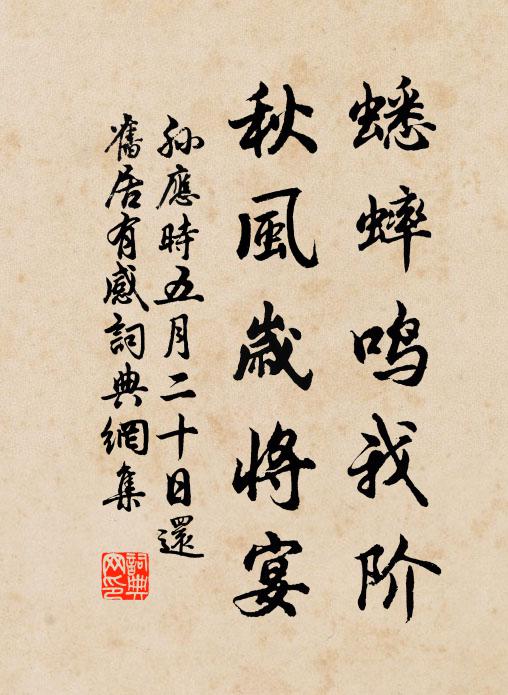 蟋蟀鸣我阶
秋風歲將宴
孙應時五月二十日還
舊居有感詞典網集
詞典
网印